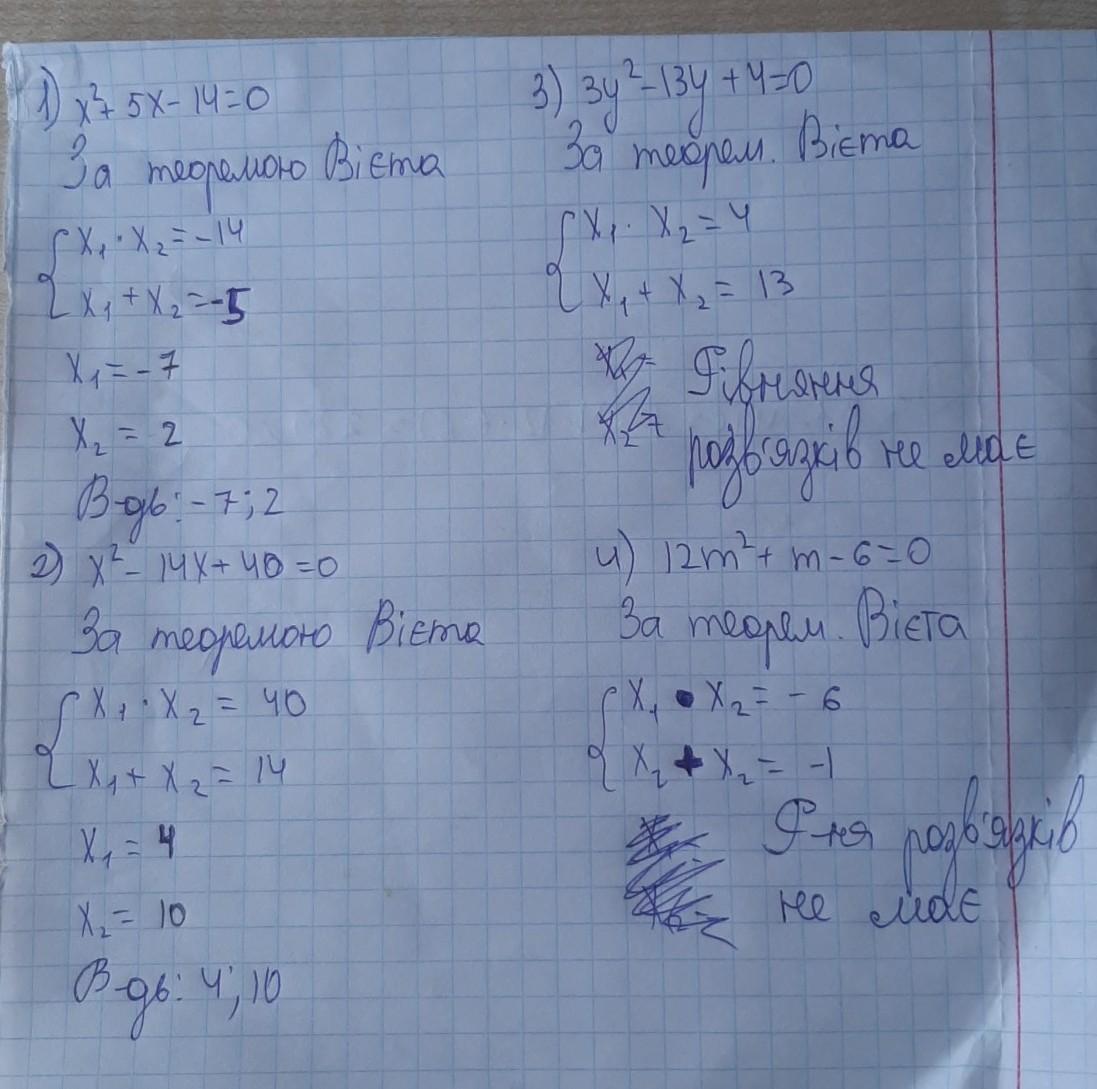 1) x²+ 5x - 14 = 0
За теоремою Вієта
x₁ · x₂ = -14
x₁ + x₂ = -5
x₁ = -7
x₂ = 2
В-дь: -7; 2
2) x² - 14x + 40 = 0
За теоремою Вієта
x₁ · x₂ = 40
x₁ + x₂ = 14
x₁ = 4
x₂ = 10
В-дь: 4; 10
3) 3y² - 13y + 4 = 0
За теорем. Вієта
x₁ · x₂ = 4
x₁ + x₂ = 13
Рівняння
розв'язків не має
4) 12m² + m - 6 = 0
За теорем. Вієта
x₁ • x₂ = - 6
x₂ + x₂ = -1
Р-ня розв'язків
не має